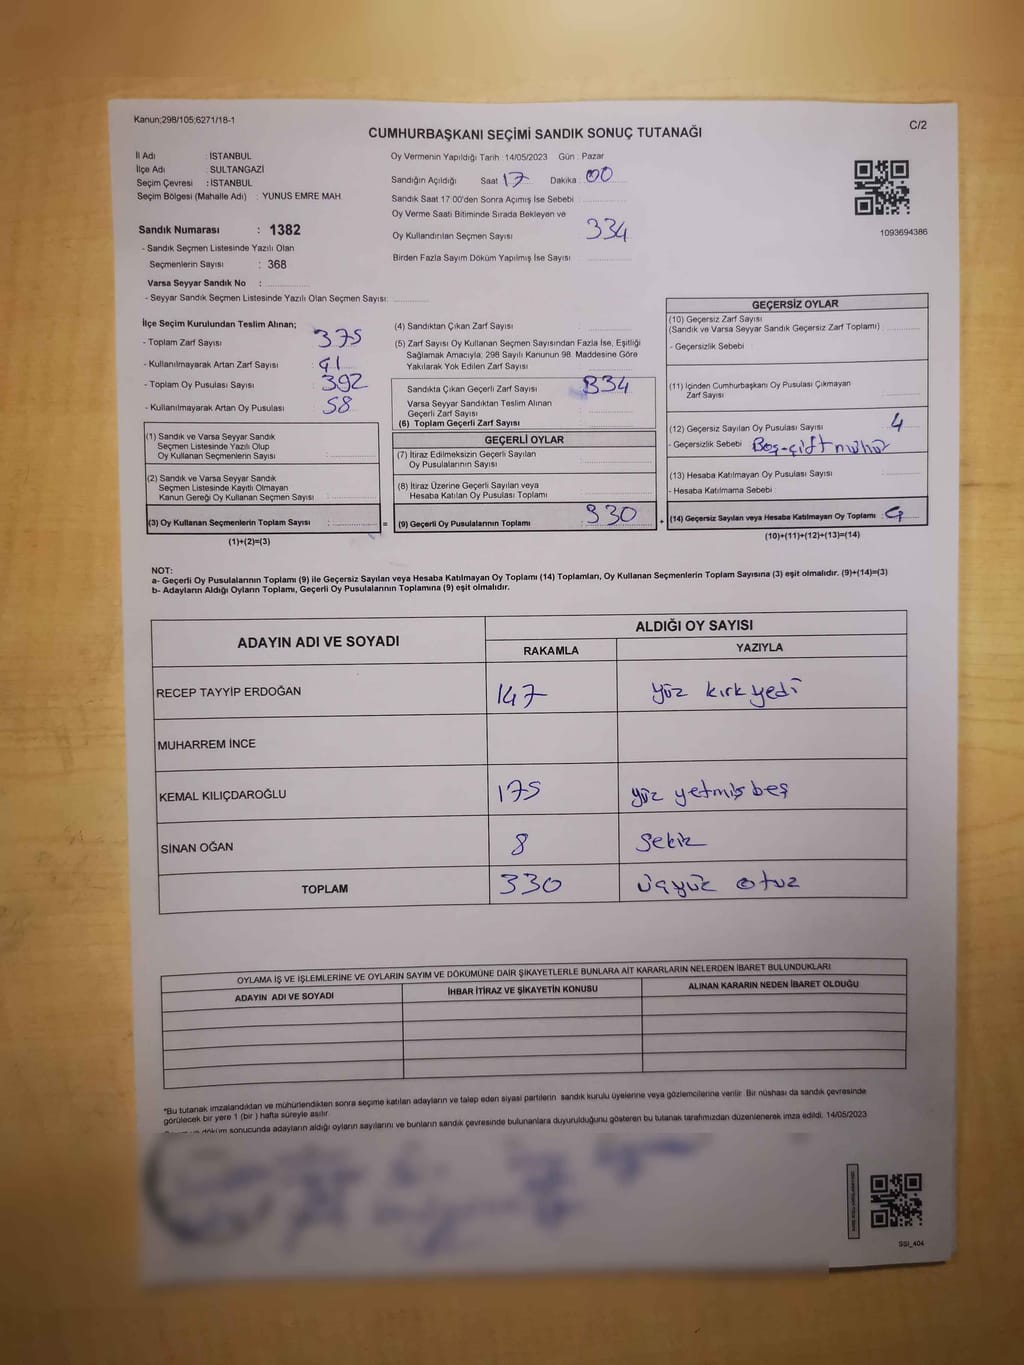 Kanun;298/105;6271/18-1
C/2
CUMHURBAŞKANI SEÇİMİ SANDIK SONUÇ TUTANAĞI
İl Adı : İSTANBUL
İlçe Adı : SULTANGAZİ
Seçim Çevresi : İSTANBUL
Seçim Bölgesi (Mahalle Adı) : YUNUS EMRE MAH.
Sandık Numarası : 1382
- Sandık Seçmen Listesinde Yazılı Olan
Seçmenlerin Sayısı : 368
Varsa Seyyar Sandık No :
- Seyyar Sandık Seçmen Listesinde Yazılı Olan Seçmen Sayısı:
Oy Vermenin Yapıldığı Tarih : 14/05/2023 Gün : Pazar
Sandığın Açıldığı Saat 17 Dakika 00
Sandık Saat 17.00'den Sonra Açımış İse Sebebi :
Oy Verme Saati Bitiminde Sırada Bekleyen ve
Oy Kullandırılan Seçmen Sayısı 334
Birden Fazla Sayım Döküm Yapılmış İse Sayısı
1093694386
İlçe Seçim Kurulundan Teslim Alınan;
- Toplam Zarf Sayısı : 375
- Kullanılmayarak Artan Zarf Sayısı : 41
- Toplam Oy Pusulası Sayısı : 392
- Kullanılmayarak Artan Oy Pusulası : 58
(1) Sandık ve Varsa Seyyar Sandık
Seçmen Listesinde Yazılı Olup
Oy Kullanan Seçmenlerin Sayısı :
(2) Sandık ve Varsa Seyyar Sandık
Seçmen Listesinde Kayıtlı Olmayan
Kanun Gereği Oy Kullanan Seçmen Sayısı :
(3) Oy Kullanan Seçmenlerin Toplam Sayısı : =
(1)+(2)=(3)
(4) Sandıktan Çıkan Zarf Sayısı :
(5) Zarf Sayısı Oy Kullanan Seçmen Sayısından Fazla İse, Eşitliği
Sağlamak Amacıyla, 298 Sayılı Kanunun 98. Maddesine Göre
Yakılarak Yok Edilen Zarf Sayısı :
Sandıkta Çıkan Geçerli Zarf Sayısı : 334
Varsa Seyyar Sandıktan Teslim Alınan
Geçerli Zarf Sayısı :
(6) Toplam Geçerli Zarf Sayısı :
GEÇERLİ OYLAR
(7) İtiraz Edilmeksizin Geçerli Sayılan
Oy Pusulalarının Sayısı :
(8) İtiraz Üzerine Geçerli Sayılan veya
Hesaba Katılan Oy Pusulası Toplamı :
(9) Geçerli Oy Pusulalarının Toplamı : 330 +
GEÇERSİZ OYLAR
(10) Geçersiz Zarf Sayısı
(Sandık ve Varsa Seyyar Sandık Geçersiz Zarf Toplamı) :
- Geçersizlik Sebebi :
(11) İçinden Cumhurbaşkanı Oy Pusulası Çıkmayan
Zarf Sayısı :
(12) Geçersiz Sayılan Oy Pusulası Sayısı : 4
- Geçersizlik Sebebi : Boş-çift mühür
(13) Hesaba Katılmayan Oy Pusulası Sayısı :
- Hesaba Katılmama Sebebi :
(14) Geçersiz Sayılan veya Hesaba Katılmayan Oy Toplamı : 4
(10)+(11)+(12)+(13)=(14)
NOT:
a- Geçerli Oy Pusulalarının Toplamı (9) ile Geçersiz Sayılan veya Hesaba Katılmayan Oy Toplamı (14) Toplamları, Oy Kullanan Seçmenlerin Toplam Sayısına (3) eşit olmalıdır. (9)+(14)=(3)
b- Adayların Aldığı Oyların Toplamı, Geçerli Oy Pusulalarının Toplamına (9) eşit olmalıdır.
ADAYIN ADI VE SOYADI ALDIĞI OY SAYISI
RAKAMLA YAZIYLA
RECEP TAYYİP ERDOĞAN 147 yüz kırk yedi
MUHARREM İNCE
KEMAL KILIÇDAROĞLU 175 yüz yetmiş beş
SİNAN OĞAN 8 sekiz
TOPLAM 330 üçyüz otuz
OYLAMA İŞ VE İŞLEMLERİNE VE OYLARIN SAYIM VE DÖKÜMÜNE DAİR ŞİKAYETLERLE BUNLARA AİT KARARLARIN NELERDEN İBARET BULUNDUKLARI
ADAYIN ADI VE SOYADI İHBAR İTİRAZ VE ŞİKAYETİN KONUSU ALINAN KARARIN NEDEN İBARET OLDUĞU
*Bu tutanak imzalandıktan ve mühürlendikten sonra seçime katılan adayların ve talep eden siyasi partilerin sandık kurulu üyelerine veya gözlemcilerine verilir. Bir nüshası da sandık çevresinde
görülecek bir yere 1 (bir ) hafta süreyle asılır.
döküm sonucunda adayların aldığı oyların sayılarını ve bunların sandık çevresinde bulunanlara duyurulduğunu gösteren bu tutanak tarafımızdan düzenlenerek imza edildi. 14/05/2023
SSI_404